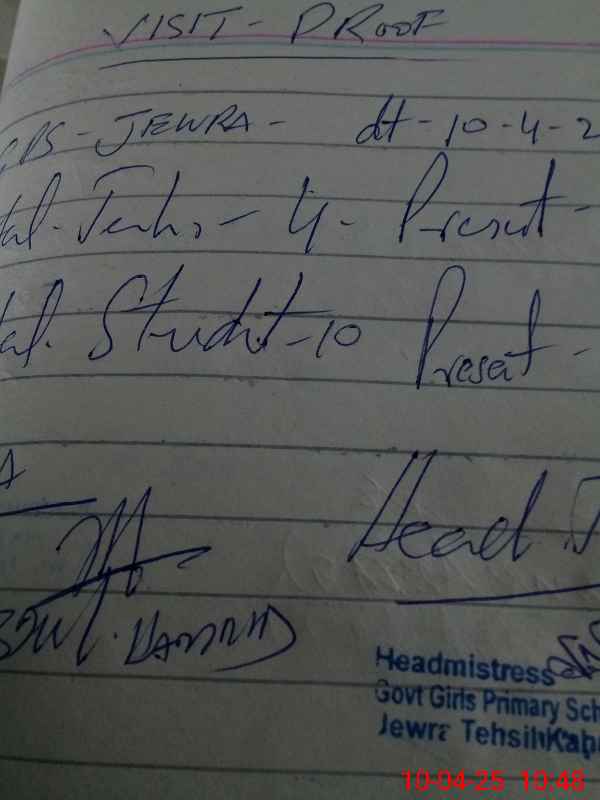 VISIT - PROOF
GPS - JEWRA - dt - 10-4-2
tal. - 4 - Present -
tal. Student - 10 Present -
A
Head T
Headmistress
Govt Girls Primary Sch
Jewra Tehsil Kab
10-04-25 10:48